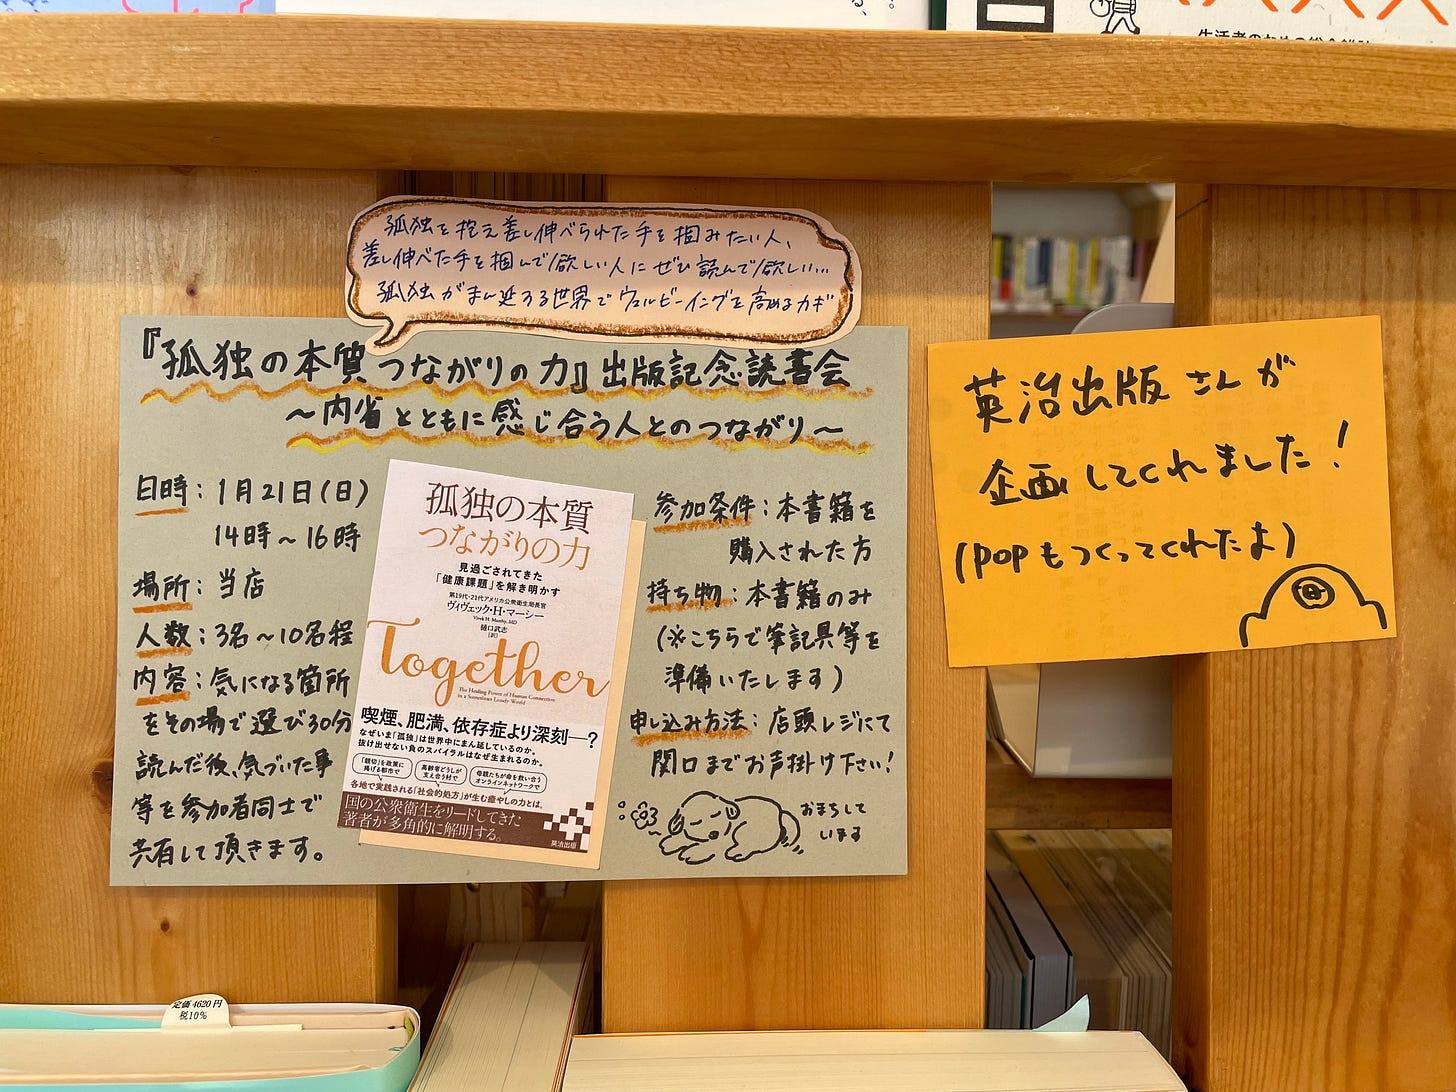 生活者のための総合雑誌
孤独を抱え差し伸べられた手を掴みたい人、
差し伸べた手を掴んで欲しい人にぜひ読んで欲しい…
孤独がまん延する世界でウェルビーイングを高めるカギ
『孤独の本質 つながりの力』出版記念読書会
～内省とともに感じ合う人とのつながり～
日時：1月21日(日)
14時～16時
場所：当店
人数：3名～10名程
内容：気になる箇所
をその場で選び30分
読んだ後、気づいた事
等を参加者同士で
共有して頂きます。
孤独の本質
つながりの力
見過ごされてきた
「健康課題」を解き明かす
第19代・21代アメリカ公衆衛生局長官
ヴィヴェック・H・マーシー
Vivek H. Murthy, MD
樋口武志
[訳]
Together
The Healing Power of Human Connection
in a Sometimes Lonely World
喫煙、肥満、依存症より深刻―？
なぜいま「孤独」は世界中にまん延しているのか。
抜け出せない負のスパイラルはなぜ生まれるのか。
「親切」を政策に
掲げる都市で
高齢者どうしが
支え合う村で
母親たちが命を救い合う
オンラインネットワークで
各地で実践される「社会的処方」が生む癒やしの力とは。
国の公衆衛生をリードしてきた
著者が多角的に解明する。
英治出版
参加条件：本書籍を
購入された方
持ち物：本書籍のみ
(※こちらで筆記具等を
準備いたします)
申し込み方法：店頭レジにて
関口までお声掛け下さい！
おまちして
います
英治出版さんが
企画してくれました！
(popもつくってくれたよ)
定価4620円
税10%